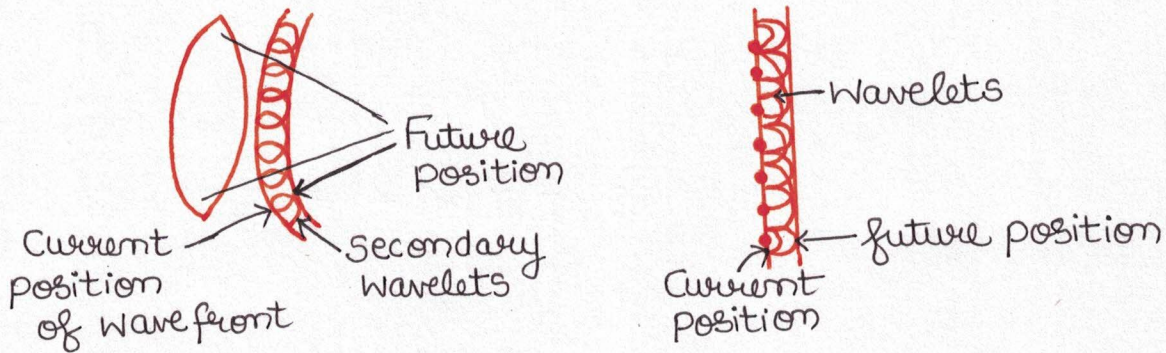 Future
position
Current
position
of wavefront
secondary
wavelets
wavelets
future position
Current
position